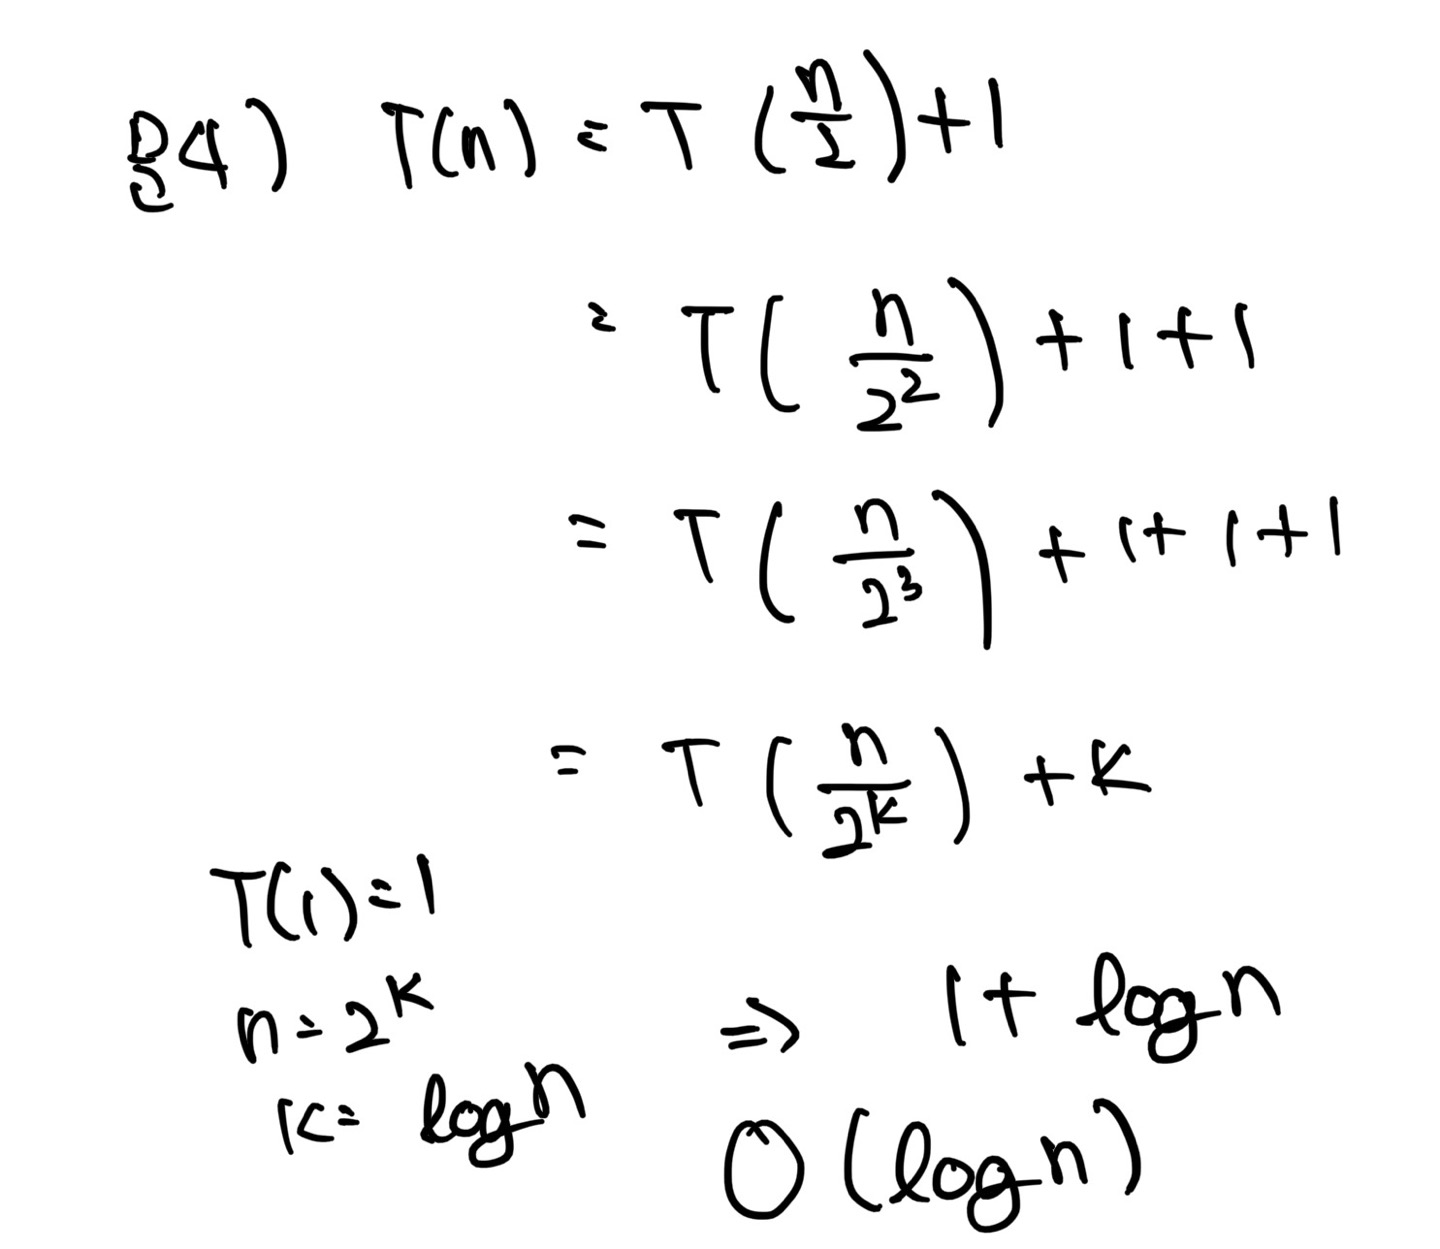 믈4) T(n) = T(n/2)+1
= T(n/2²) + 1 + 1
= T(n/2³) + 1 + 1 + 1
= T(n/2ᵏ) + k
T(1) = 1
n = 2ᵏ
k = log n
⇒ 1 + log n
O(log n)